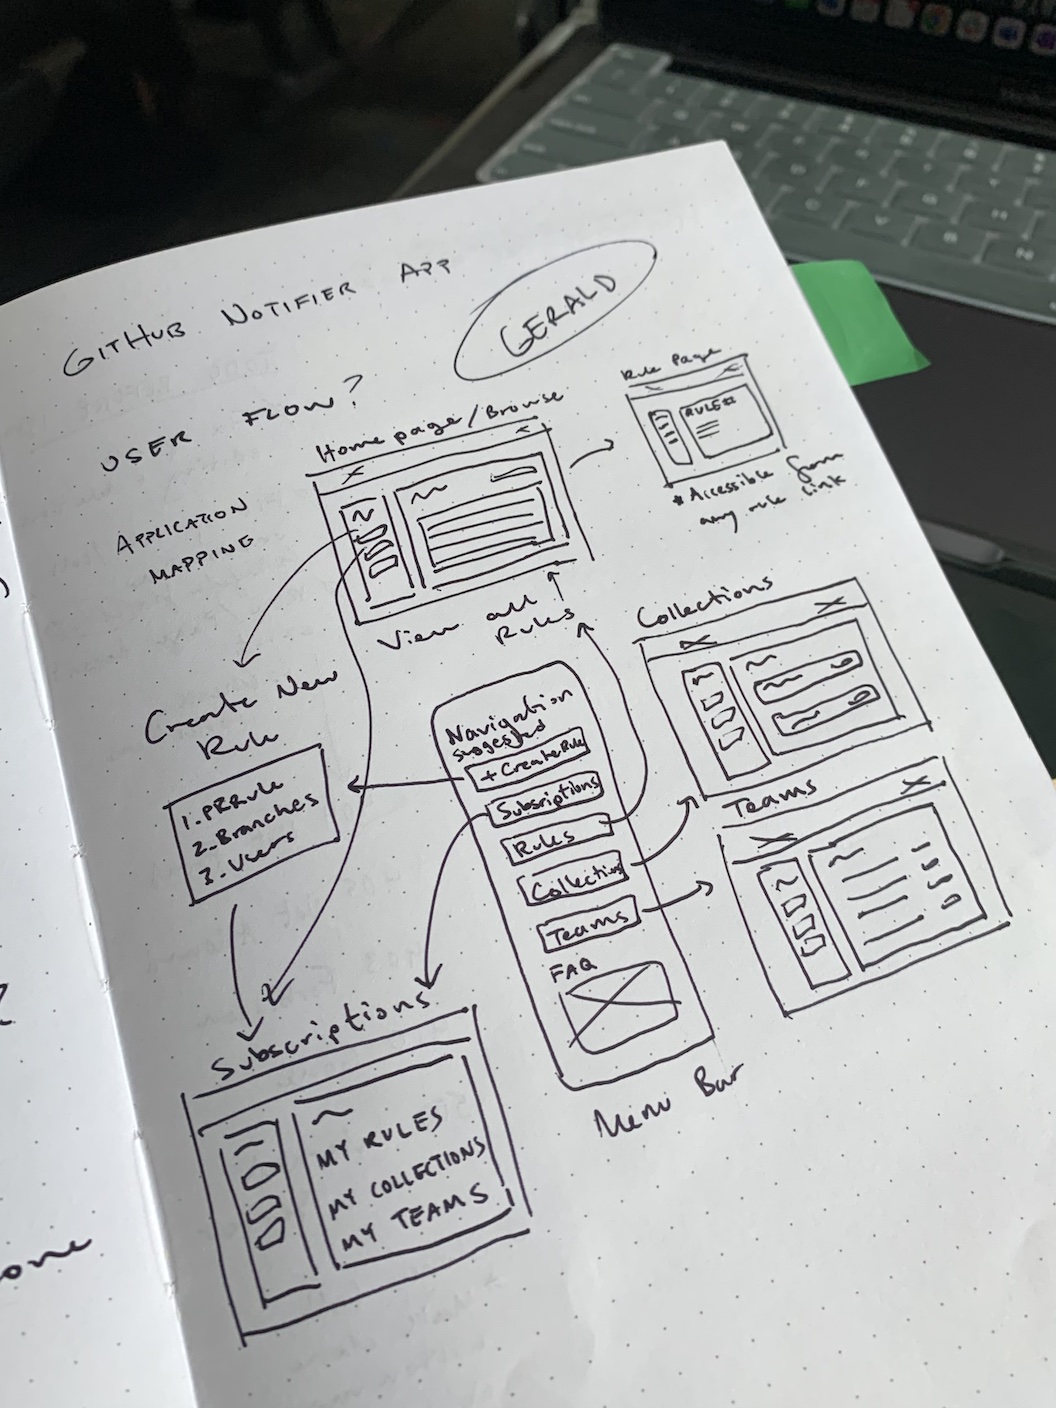 GITHUB NOTIFIER APP
GERALD
USER FLOW?
APPLICATION
MAPPING
Homepage/Browse
View all
Rules
Rule Page
RULE #1
* Accessible from
any rule link
Create New
Rule
1. PR Rule
2. Branches
3. Users
Navigation
suggested
+ Create Rule
Subscriptions
Rules
Collections
Teams
FAQ
Menu Bar
Collections
Teams
Subscriptions
MY RULES
MY COLLECTIONS
MY TEAMS
one